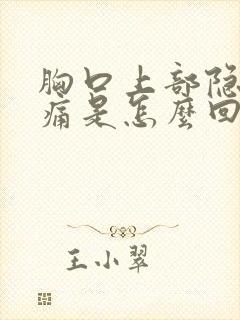 胸口上部隐
痛是怎麼回
王小翠